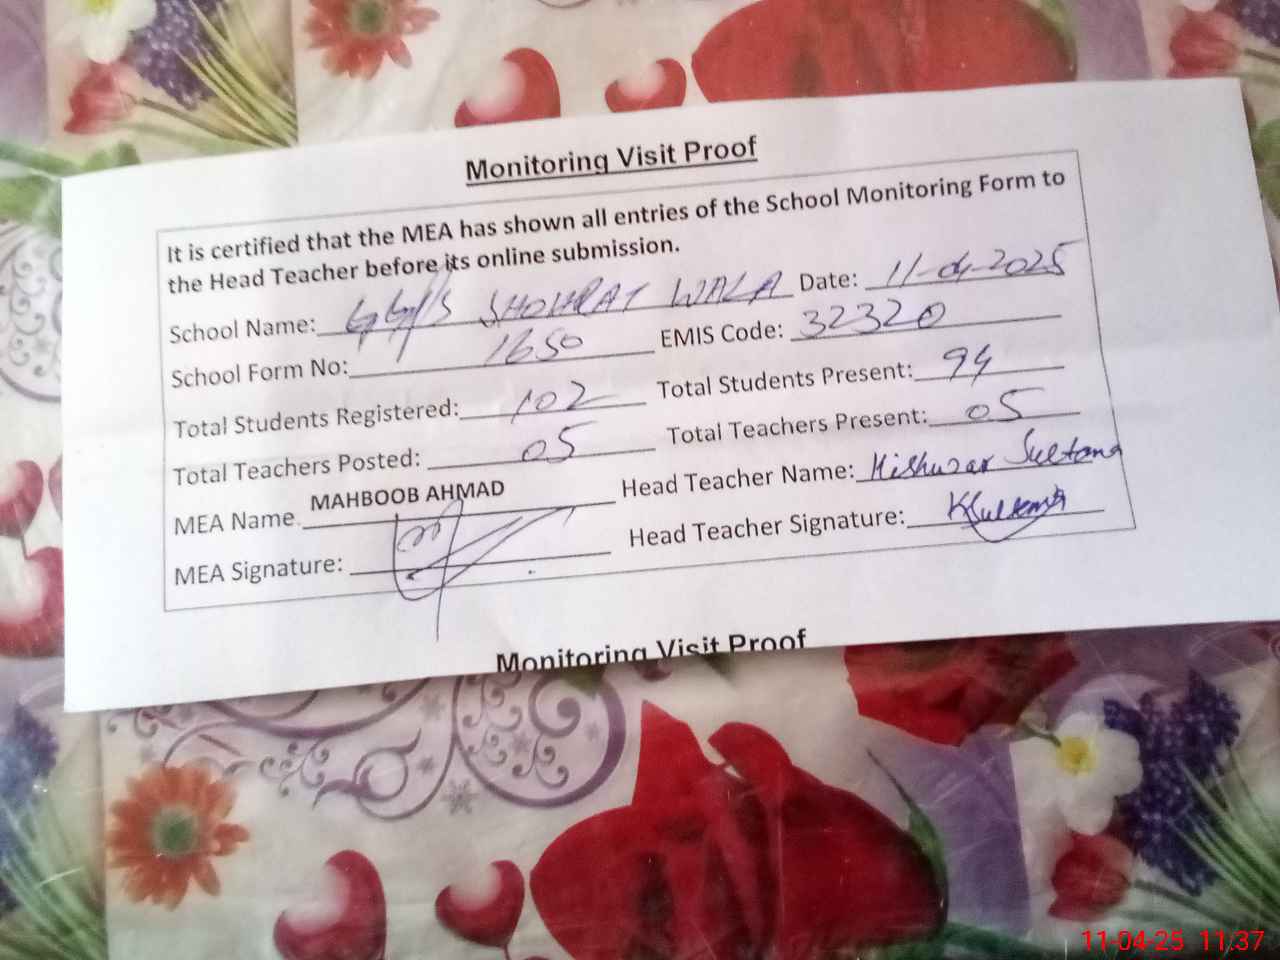 Monitoring Visit Proof
It is certified that the MEA has shown all entries of the School Monitoring Form to
the Head Teacher before its online submission.
School Name: SHOHRAT WALA Date: 11-04-2025
School Form No: 1650 EMIS Code: 32320
Total Students Registered: 102 Total Students Present: 94
Total Teachers Posted: 05 Total Teachers Present: 05
MEA Name MAHBOOB AHMAD Head Teacher Name: Kishwar Sultana
MEA Signature: Head Teacher Signature: KSultana
Monitoring Visit Proof
11-04-25 11:37